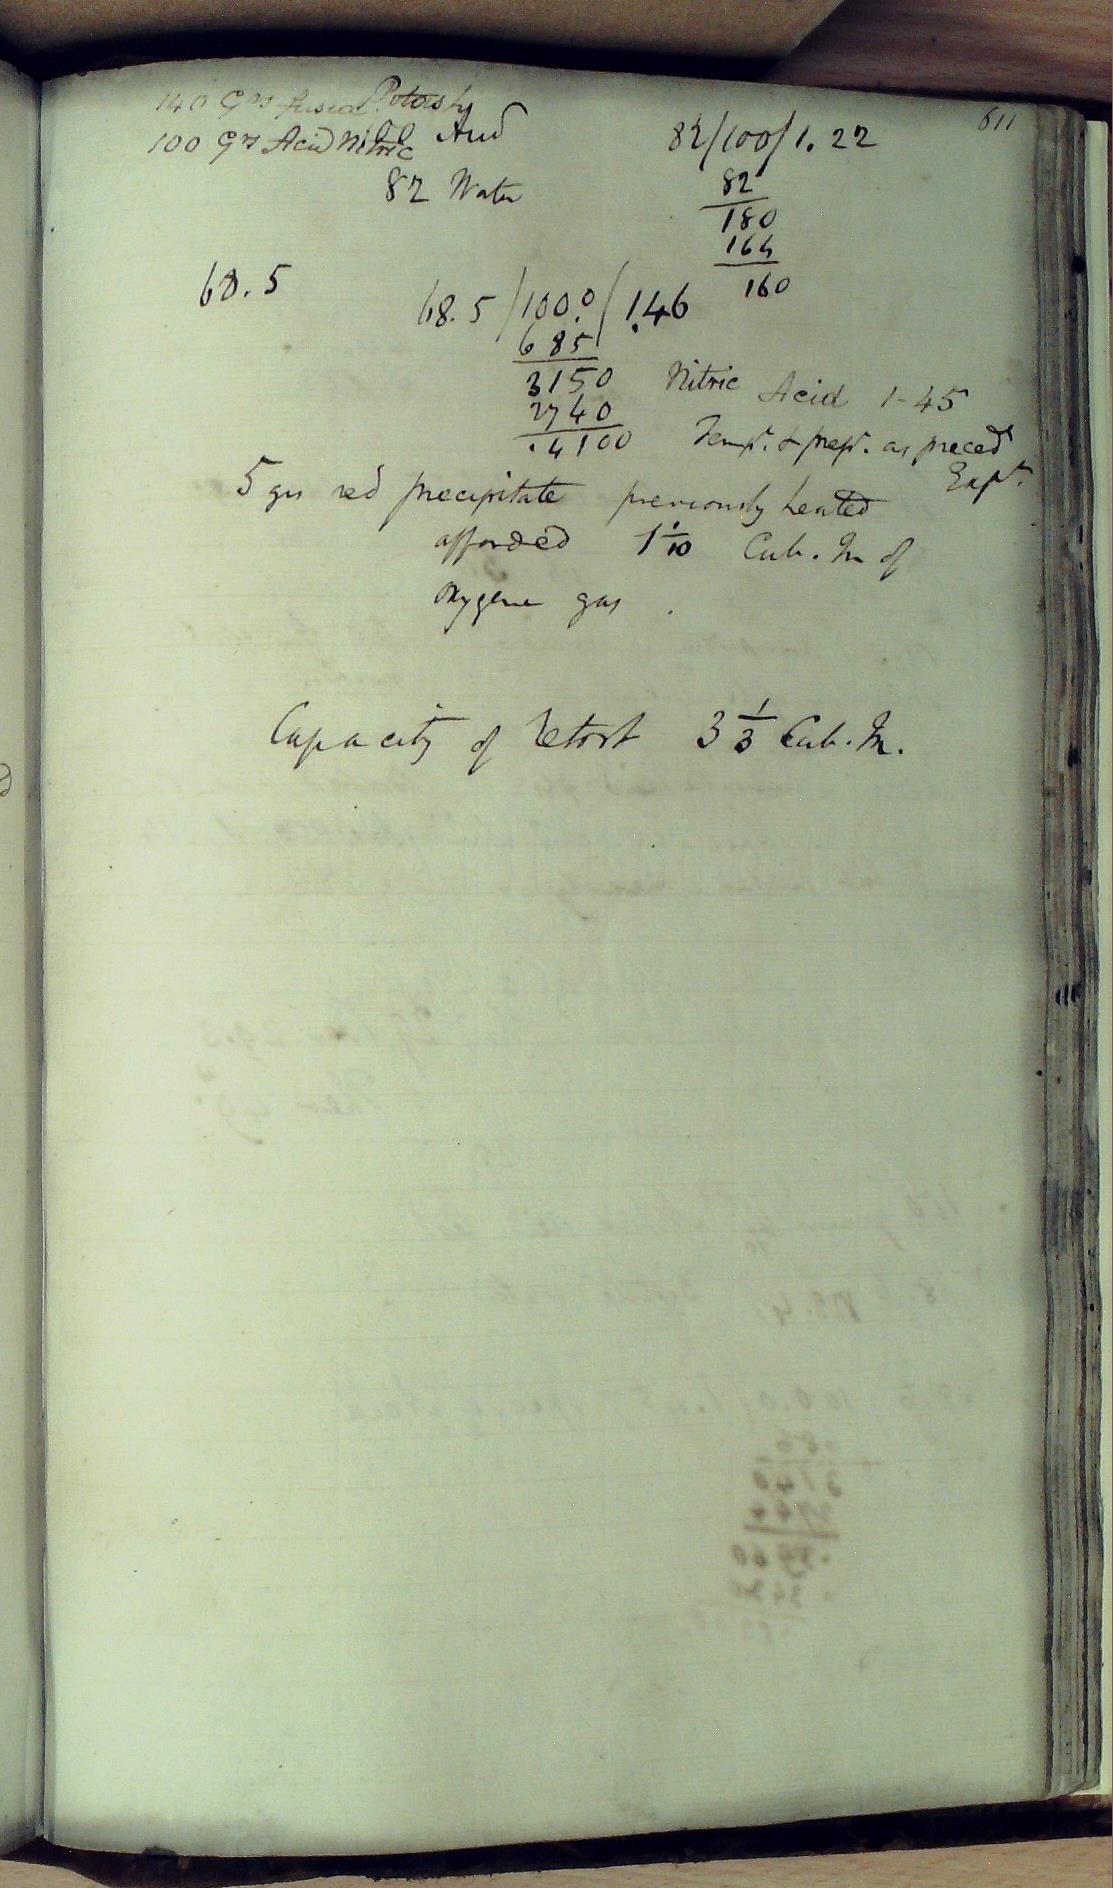 611
140 Grs fused Potash
100 Grs Acid Nitric Acid
82/100/1.22
82 Water
82
180
164
160
68.5
68.5/100.0/1.46
685
3150
2740
.4100
Nitric Acid 1-45
Tempr. & press. as preced
Expt.
5 grs red precipitate previously heated
afforded 1 1/10 Cub. In of
oxygene gas.
Capacity of Retort 3 1/3 Cub. In.